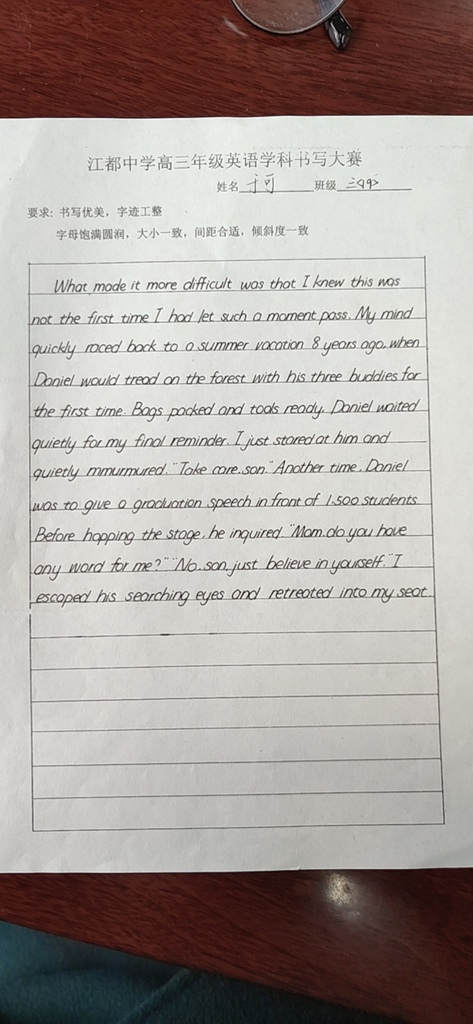 江都中学高三年级英语学科书写大赛
姓名 班级
要求: 书写优美，字迹工整
字母饱满圆润，大小一致，间距合适，倾斜度一致
What made it more difficult was that I knew this was
not the first time I had let such a moment pass. My mind
quickly raced back to a summer vacation 8 years ago, when
Daniel would tread on the forest with his three buddies for
the first time. Bags packed and tools ready, Daniel waited
quietly for my final reminder. I just stared at him and
quietly mmurmured. "Take care, son." Another time, Daniel
was to give a graduation speech in front of 1,500 students.
Before hopping the stage, he inquired. "Mom, do you have
any word for me?" "No, son, just believe in yourself." I
escaped his searching eyes and retreated into my seat.